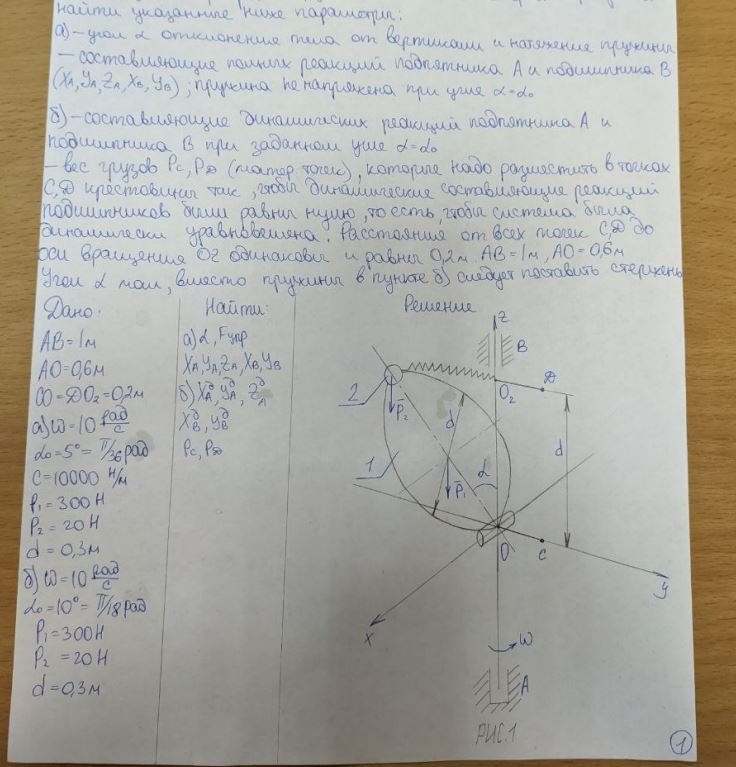 найти указанные ниже параметры:
а) – угол α отклонения тела от вертикали и натяжение пружины
– составляющие полных реакций подпятника А и подшипника В
(XA, YA, ZA, XB, YB); пружина не напряжена при угле α=α₀
б) – составляющие динамических реакций подпятника А и
подшипника В при заданном угле α=α₀
– вес грузов Pc, PD (матер. точек), которые надо разместить в точках
C, D крестовины так, чтобы динамические составляющие реакций
подшипников были равны нулю, то есть чтобы система была
динамически уравновешена. Расстояния от всех точек C, D до
оси вращения OZ одинаковы и равны 0,2м. AB=1м, AO=0,6м
Угол α мал, вместо пружины в пункте б) следует поставить стержень
Дано: Найти: Решение
AB=1м
AO=0,6м
CO=DO₂=0,2м
а) ω=10 рад/с
α₀=5°=π/36 рад
c=10000 Н/м
P₁=300Н
P₂=20Н
d=0,3м
б) ω=10 рад/с
α₀=10°=π/18 рад
P₁=300Н
P₂=20Н
d=0,3м
а) α, Fупр
XA, YA, ZA, XB, YB
б) XAᵈ, YAᵈ, ZAᵈ
XBᵈ, YBᵈ
Pc, PD
z
B
D
O₂
2
P̄₂
d
d
1
P̄₁
α
O
C
y
x
ω
A
РИС.1
1